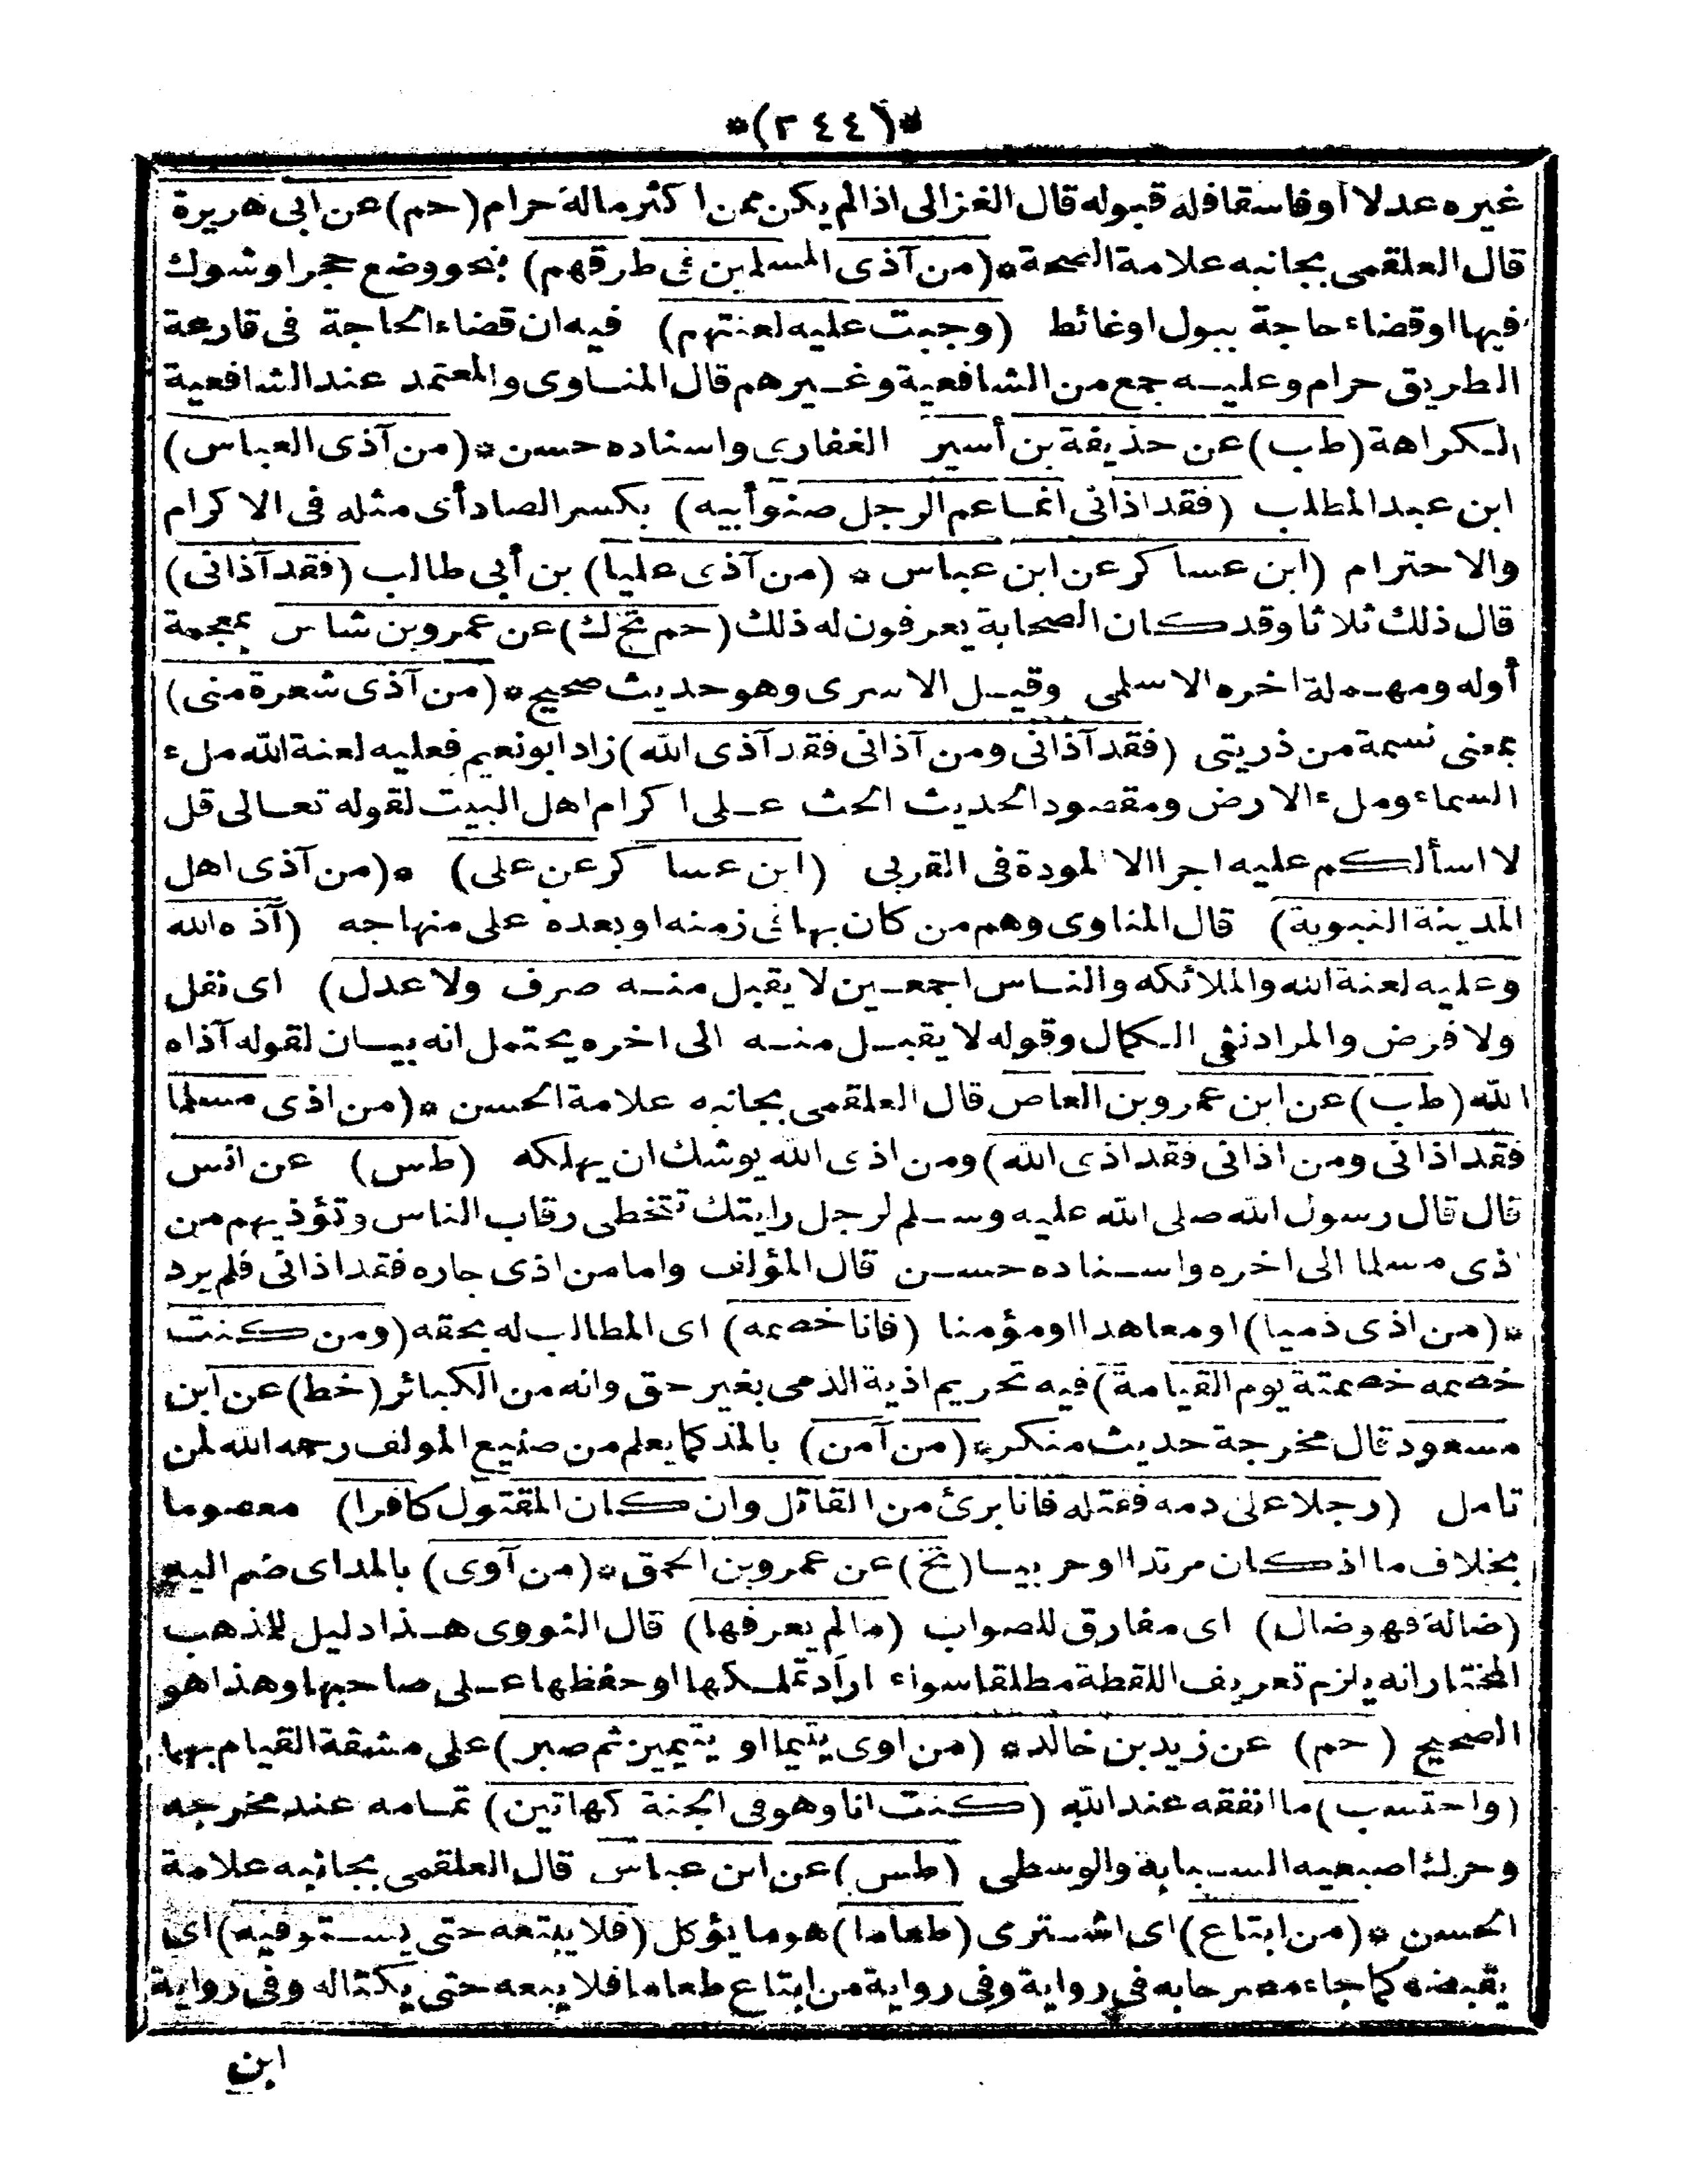 *(٢٤٤)*
غيره عدلا أو فاسقا فله قبوله قال الغزالى اذا لم يكن ممن اكثر ماله حرام (حم) عن ابى هريرة
قال العلقمى بجانبه علامة الصحة *(من آذى المسلمين فى طرقهم) بنحو وضع حجر او شوك
فيها او قضاء حاجة ببول او غائط (وجبت عليه لعنتهم) فيه ان قضاء الحاجة فى قارعة
الطريق حرام وعليه جمع من الشافعية وغيرهم قال المناوى والمعتمد عند الشافعية
الكراهة (طب) عن حذيفة بن أسير الغفارى واسناده حسن *(من آذى العباس)
ابن عبد المطلب (فقد اذانى انما عم الرجل صنو أبيه) بكسر الصاد أى مثله فى الاكرام
والاحترام (ابن عساكر عن ابن عباس * (من آذى عليا) بن أبى طالب (فقد آذانى)
قال ذلك ثلاثا وقد كان الصحابة يعرفون له ذلك (حم تخ ك) عن عمرو بن شاس بمعجمة
أوله ومهملة اخره الاسلمى وقيل الاسرى وهو حديث صحيح *(من آذى شعرة منى)
بمعنى نسمة من ذريتى (فقد آذانى ومن آذانى فقد آذى الله) زاد ابو نعيم فعليه لعنة الله ملء
السماء وملء الارض ومقصود الحديث الحث على اكرام اهل البيت لقوله تعالى قل
لا اسألكم عليه اجرا الا المودة فى القربى (ابن عساكر عن على) *(من آذى اهل
المدينة النبوية) قال المناوى وهم من كان بها فى زمنه او بعده على منهاجه (آذه الله
وعليه لعنة الله والملائكه والناس اجمعين لا يقبل منه صرف ولا عدل) اى نفل
ولا فرض والمراد نفى الكمال وقوله لا يقبل منه الى اخره يحتمل انه بيان لقوله آذاه
الله (طب) عن ابن عمرو بن العاص قال العلقمى بجانبه علامة الحسن *(من اذى مسلما
فقد اذانى ومن اذانى فقد اذى الله) ومن اذى الله يوشك ان يهلكه (طس) عن انس
قال قال رسول الله صلى الله عليه وسلم لرجل رايتك تتخطى رقاب الناس وتؤذيهم من
اذى مسلما الى اخره واسناده حسن قال المؤلف واما من اذى جاره فقد اذانى فلم يرد
*(من اذى ذميا) او معاهدا او مؤمنا (فانا خصمه) اى المطالب له بحقه (ومن كنت
خصمه خصمته يوم القيامة) فيه تحريم اذية الذمى بغير حق وانه من الكبائر (خط) عن ابن
مسعود قال مخرجة حديث منكر *(من آمن) بالمد كما يعلم من صنيع المولف رحمه الله لمن
تامل (رجلا على دمه فقتله فانا برئ من القاتل وان كان المقتول كافرا) معصوما
بخلاف ما اذ كان مرتدا او حربيا (تخ) عن عمرو بن الحمق *(من آوى) بالمد اى ضم اليه
(ضالة فهو ضال) اى مفارق للصواب (ما لم يعرفها) قال النووى هذا دليل للمذهب
المختار انه يلزم تعريف اللقطة مطلقا سواء اراد تملكها او حفظها على صاحبها وهذا هو
الصحيح (حم) عن زيد بن خالد * (من اوى يتيما او يتيمين ثم صبر) على مشقة القيام بهما
(واحتسب) ما انفقه عند الله (كنت انا وهو فى الجنة كهاتين) تمامه عند مخرجه
وحرك اصبعيه السبابة والوسطى (طس) عن ابن عباس قال العلقمى بجانبه علامة
الحسن *(من ابتاع) اى اشترى (طعاما) هو ما يؤكل (فلا يبتعه حتى يستوفيه) اى
يقبضه كما جاء مصرحا به فى رواية وفى رواية من ابتاع طعاما فلا يبعه حتى يكتاله وفى رواية
ابن